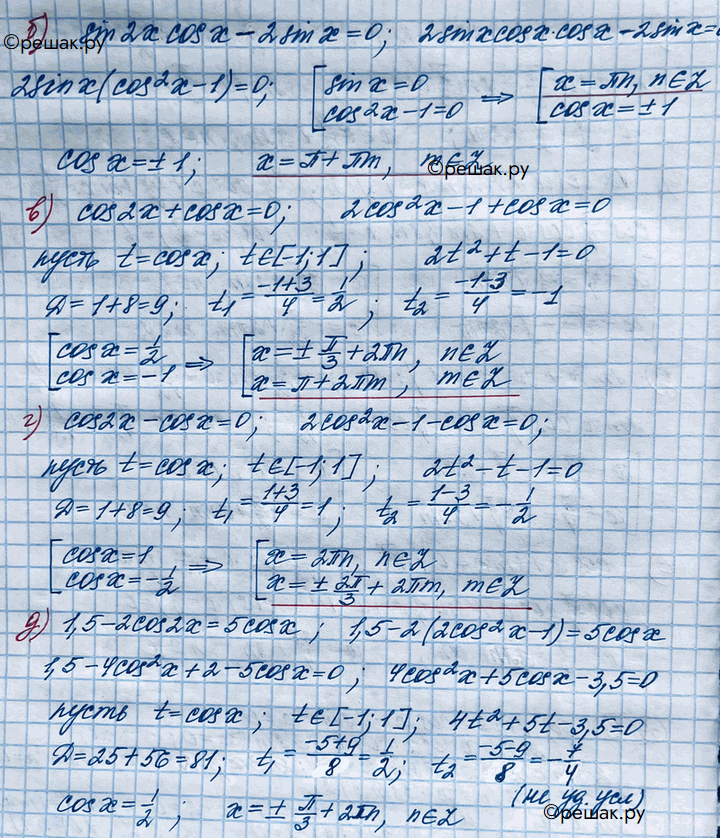 ©решак.ру
б) sin2x cosx − 2sinx = 0; 2sinxcosx·cosx − 2sinx = 0
2sinx(cos²x−1)=0; [sinx=0 cos²x−1=0 ⇒ [x=πn, n∈Z cosx=±1
cosx=±1; x=π+πm, m∈Z
©решак.ру
в) cos2x+cosx=0; 2cos²x−1+cosx=0
пусть t=cosx; t∈[−1;1]; 2t²+t−1=0
D=1+8=9; t₁=(−1+3)/4=1/2; t₂=(−1−3)/4=−1
[cosx=1/2 cosx=−1 ⇒ [x=±π/3+2πn, n∈Z x=π+2πm, m∈Z
г) cos2x−cosx=0; 2cos²x−1−cosx=0;
пусть t=cosx; t∈[−1;1]; 2t²−t−1=0
D=1+8=9; t₁=(1+3)/4=1; t₂=(1−3)/4=−1/2
[cosx=1 cosx=−1/2 ⇒ [x=2πn, n∈Z x=±2π/3+2πm, m∈Z
д) 1,5−2cos2x=5cosx; 1,5−2(2cos²x−1)=5cosx
1,5−4cos²x+2−5cosx=0; 4cos²x+5cosx−3,5=0
пусть t=cosx; t∈[−1;1]; 4t²+5t−3,5=0
D=25+56=81; t₁=(−5+9)/8=1/2; t₂=(−5−9)/8=−7/4
(не уд. усл)
cosx=1/2; x=±π/3+2πn, n∈Z
©решак.ру